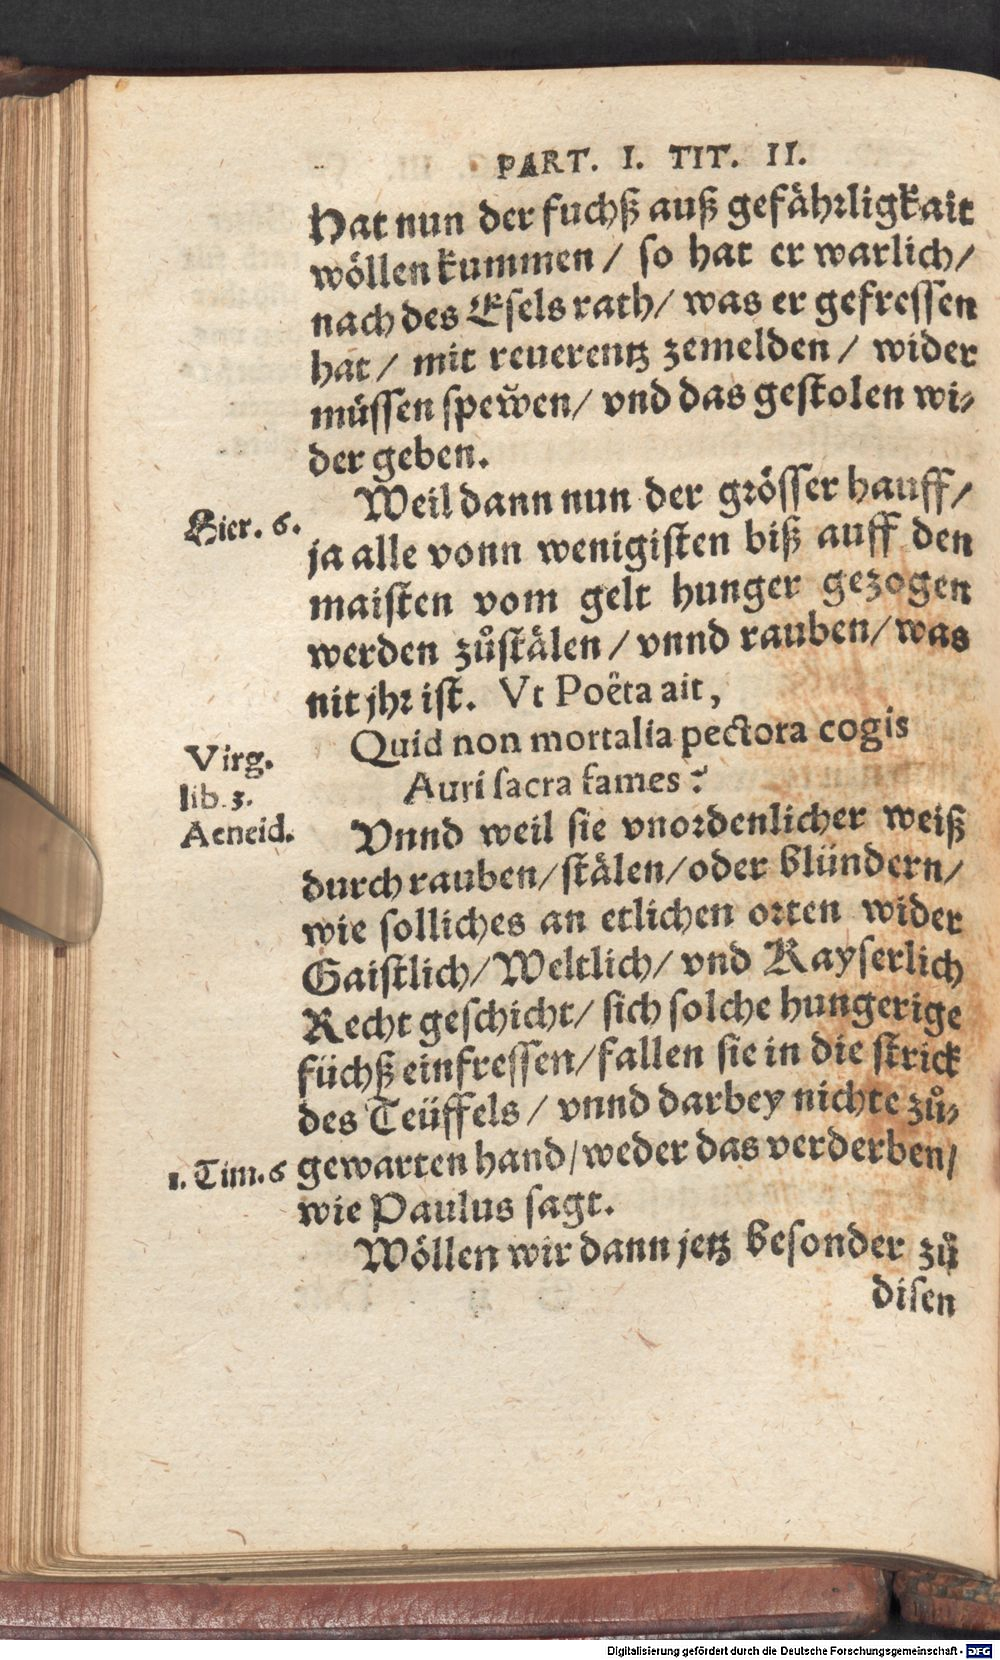 PART. I. TIT. II.
Hat nun der fuchß auß gefährligkait
wöllen kummen / so hat er warlich /
nach des Esels rath / was er gefressen
hat / mit reuerentz zemelden / wider
müssen speẅen / vnd das gestolen wi⸗
der geben.
Weil dann nun der grösser hauff /
Hier. 6.
ja alle vonn wenigisten biß auff den
maisten vom gelt hunger gezogen
werden zůstälen / vnnd rauben / was
nit jhr ist. Vt Poëta ait,
Virg.
lib. 3.
Aeneid.
Quid non mortalia pectora cogis
Auri sacra fames?
Vnnd weil sie vnordenlicher weiß
durch rauben / stälen / oder blündern /
wie solliches an etlichen orten wider
Gaistlich / Weltlich / vnd Kayserlich
Recht geschicht / sich solche hungerige
füchß einfressen / fallen sie in die strick
des Teüffels / vnnd darbey nichte zů⸗
1. Tim. 6
gewarten hand / weder das verderben /
wie Paulus sagt.
Wöllen wir dann jetz besonder zů
disen
Digitalisierung gefördert durch die Deutsche Forschungsgemeinschaft - DFG